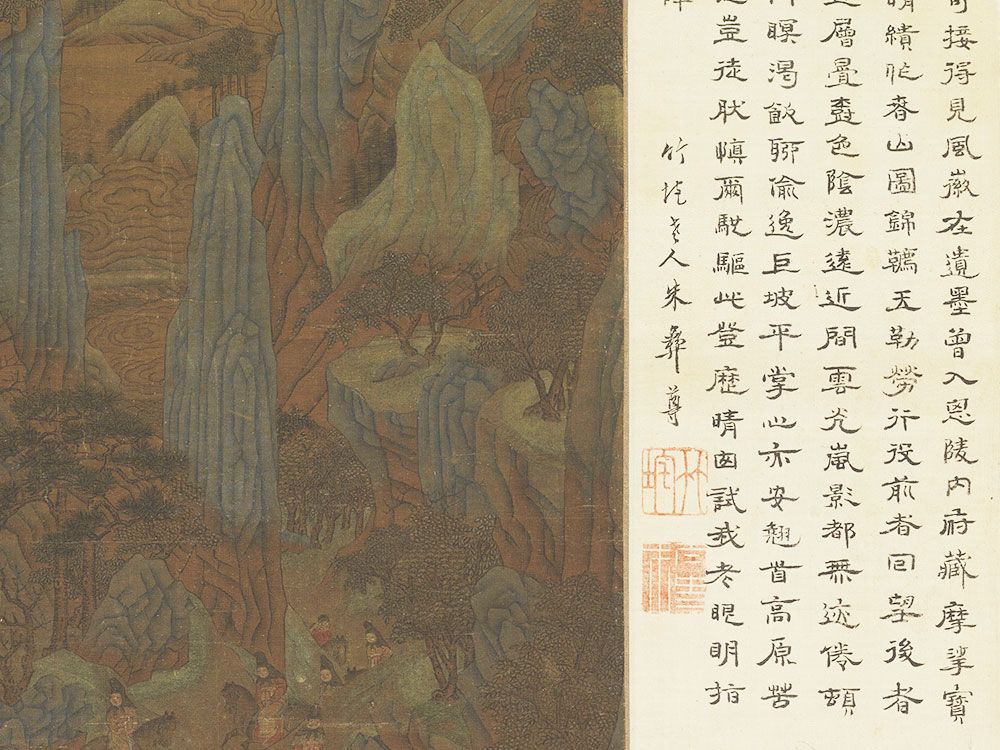 接得見風徽在遺墨曾入恩陵内府藏摩挲寶
忙春山圖錦韉玉勒勞行役前者回望後者
層疊色陰濃遠近間雲光嵐影都無迹倦頓
瞑渴飲聊偷逸巨坡平掌心亦安翹首高原苦
豈徒肰慎爾驅此登歷晴囪試我老眼明指
竹垞老人朱彝尊
竹垞